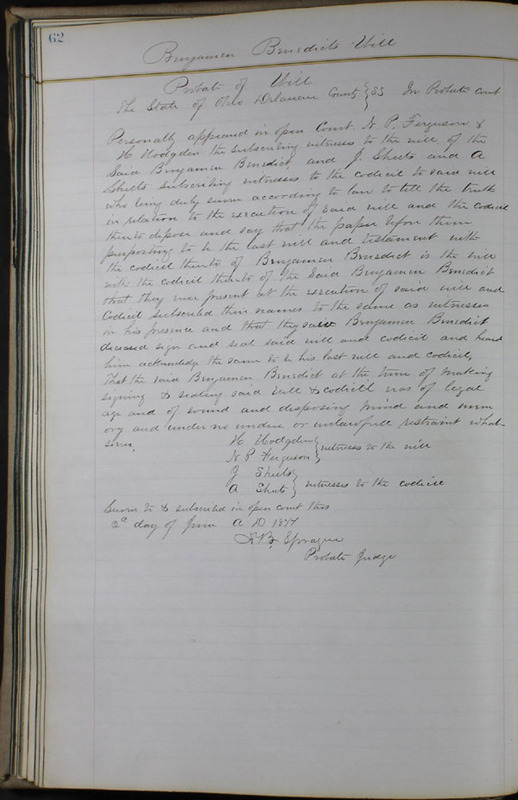 62
Benjamen Benedicts Will
Probate of Will
The State of Ohio Delaware County }SS In Probate court
Personally appeared in open Court N. P. Ferguson &
H Hodgden the subscribing witnesses to the will of the
Said Benjamen Benedict, and J. Sheets and A
Sheets subscribing witnesses to the codicil to said will
who being duly sworn according to law to tell the truth
in relation to the execution of said will and the Codicil
thereto depose and say that the paper before them
purporting to be the last will and testament with
the codicil thereto of Benjamen Benedict is the will
with the codicil thereto of the Said Benjamen Benedict
that they were present at the execution of said will and
Codicil subscribed their names to the same as witnesses
in his presence and that they saw Benjamen Benedict
deceased sign and seal said will and codicil and heard
him acknowledge the same to be his last will and codicil,
that the said Benjamen Benedict at the time of making
signing & sealing said will & codicill was of legal
age and of sound and disposing mind and mem
ory and under no undue or unlawfull restraint what-
soever,
H. Hodgden
N. P. Ferguson } witnesses to the will
J Sheets
A Sheets } witnesses to the codicil
Sworn to & subscribed in open court this
2d day of June A D 1877
Sprague
Probate Judge